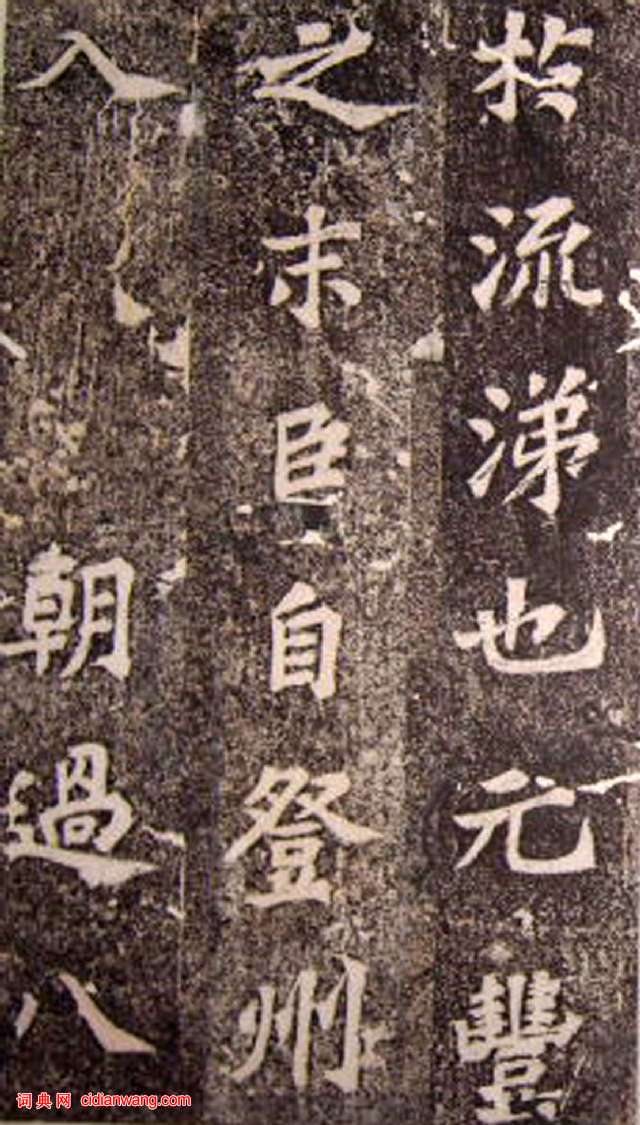 於流涕也元豐
之末臣自登州
入朝過八
词典网 cidianwang.com